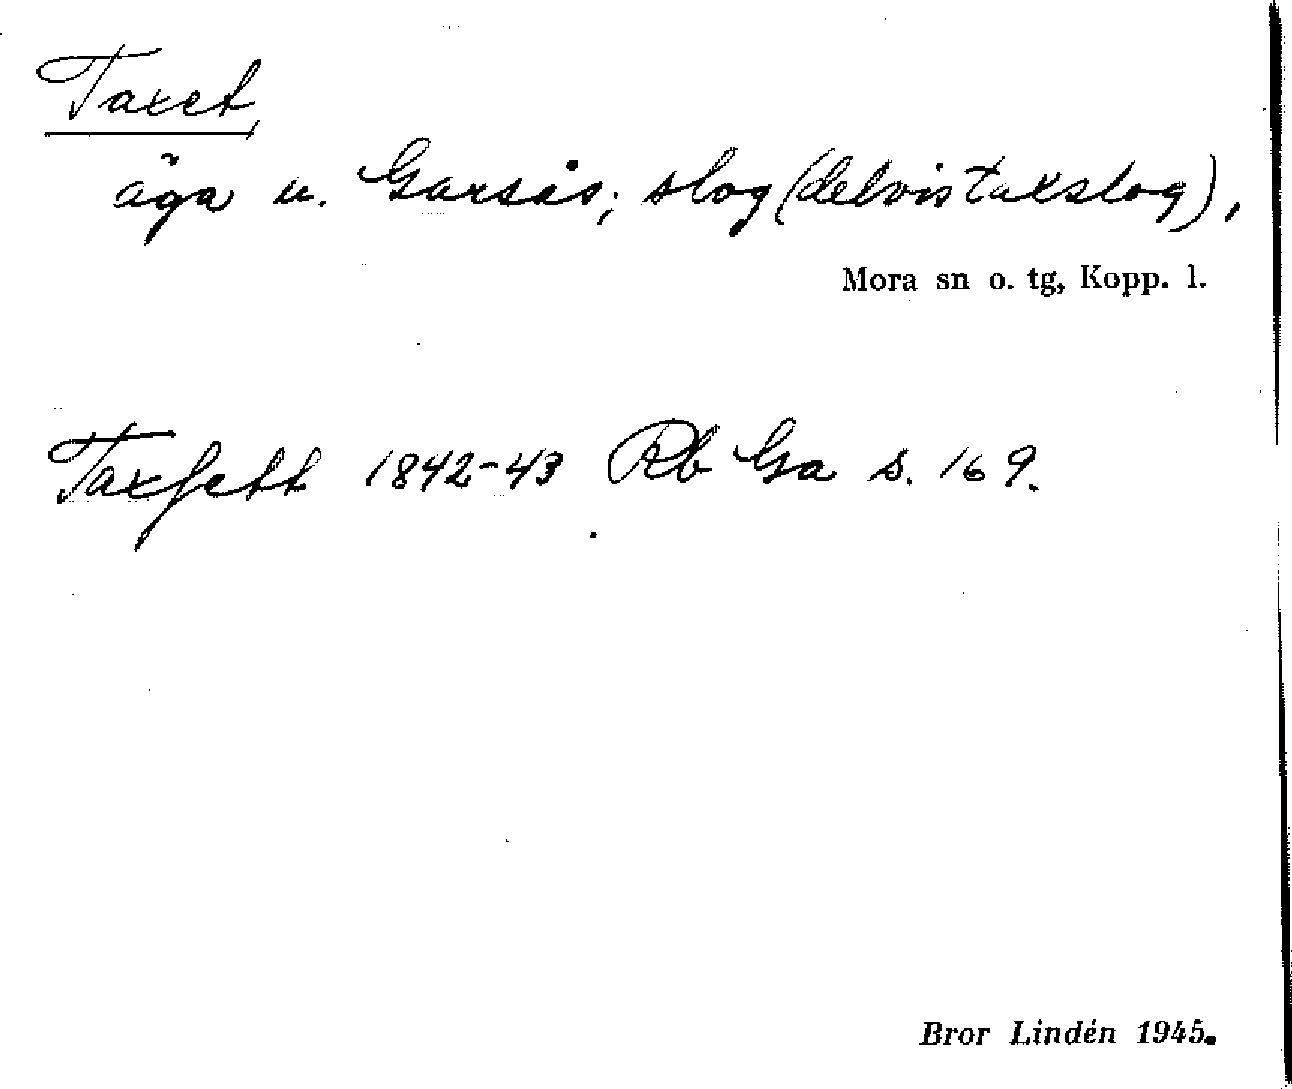 Taxet,
äga u. Garsås; slog (delvis takslog),
Mora sn o. tg, Kopp. l.
Taxsett 1842-43 Rb Ga s. 169.
Bror Lindén 1945.